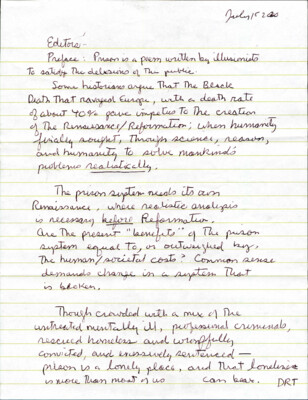 July 15 2020
Editors -
Preface: Prison is a poem written by illusionists
to satisfy the delusions of the public.
Some historians argue that the Black
Death that ravaged Europe, with a death rate
of about 40% gave impetus to the creation
of the Renaissance/Reformation; when humanity
finally sought, through science, reason,
and humanity to solve mankind's
problems realistically.
The prison system needs its own
Renaissance, where realistic analysis
is necessary before Reformation.
Are the present "benefits" of the prison
system equal to, or outweighed by,
the human/societal costs? Common sense
demands change in a system that
is broken.
Though crowded with a mix of the
untreated mentally ill, professional criminals,
rescued homeless and wrongfully
convicted, and excessively sentenced —
prison is a lonely place, and that loneliness
is more than most of us can bear. DRT